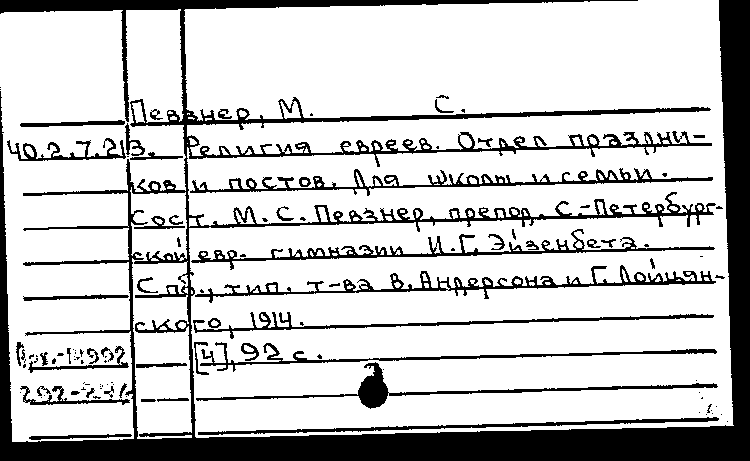 Певзнер, М. С.
40.2.7.213. Религия евреев. Отдел праздни-
ков и постов. Для школы и семьи.
Сост. М. С. Певзнер, препод. С.-Петербург-
ской евр. гимназии И.Г. Эйзенбета.
Спб., тип. т-ва В. Андерсона и Г. Лойцян-
ского, 1914.
[4], 92 с.